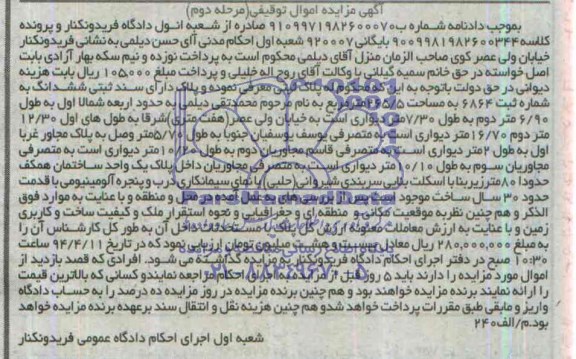 آگهی مزایده اموال توقیفی(مرحله دوم)
بموجب دادنامه شماره ب۹۱۰۹۹۷۱۹۸۲۶۰۰۰۷۰ صادره از شعبه اول دادگاه فریدونکنار و پرونده
کلاسه۹۰۰۹۹۸۱۹۸۲۶۰۰۳۴۴ بایگانی۹۲۰۰۰۷ شعبه اول احکام مدنی آی حسن دیلمی به نشانی فریدونکنار
خیابان ولی عصر کوی صاحب الزمان منزل آقای دیلمی محکوم است به پرداخت نوزده و نیم سکه بهار آزادی بابت
اصل خواسته در حق خانم سمیه گیلانی با وکالت آقای روح اله خلیلی و پرداخت مبلغ ۱۰۵۰۰۰ ریال بابت هزینه
دیوانی در حق دولت باتوجه به این که محکوم له پلاک ثبتی معرفی نموده و پلاک دارای سند ثبتی ششدانگ به
شماره ثبت ۶۸۶۴ به مساحت ۲۶۵ مترمربع به نام مرحوم محمدتقی دیلمی به حدود اربعه شمالا اول به طول
۶/۹۰ متر دوم به طول ۷/۳۰ متر دیواری است به خیابان ولی عصر(هفت متری)شرقا به طول های اول ۱۲/۳۰
متر دوم ۱۶/۷۰ متر دیواری است به متصرفی یوسف یوسفیان جنوبا به طول ۵/۷۰ متر وصل به پلاک مجاور غربا
اول به طول ۲متر دیواری است به متصرفی قاسم مجاوریان دوم به طول ۱۰/۲۰ متر دیواری است به متصرفی
مجاوریان سوم به طول ۱۰/۱۰ متر دیواری است به متصرفی مجاوریان داخل پلاک یک واحد ساختمان همکف
حدودا ۸۰مترزیربنا با اسکلت بنایی سربندی شیروانی(حلبی) با نمای سیمانکاری درب و پنجره آلومینیومی با قدمت
حدود ۳۰ سال ساخت موجود است پس از بررسی های به عمل آمده در محل و منطقه و با عنایت به موارد فوق
الذکر و هم چنین نظر به موقعیت مکانی و منطقه ای و جغرافیایی و نحوه استقرار ملک و کیفیت ساخت و کاربری
زمین و با عنایت به ارزش معاملات معمولله ارزش کل پلاک با مستحدثات داخل آن به طور کل کارشناس آن را
به مبلغ ۲۸۰,۰۰۰,۰۰۰ ریال معادل بیست و هشت میلیون تومان ارزیابی نمود که در تاریخ ۹۴/۴/۱۱ ساعت
۱۰:۳۰ صبح در دفتر اجرای احکام دادگاه فریدونکنار به مزایده گذاشته می شود. افرادی که قصد بازدید از
اموال مورد مزایده را دارند باید ۵ روز قبل از مزایده به اجرای احکام مراجعه نمایندو کسانی که بالاترین قیمت
را ارائه نمایند برنده مزایده خواهند بود و هم چنین برنده مزایده در روز مزایده ده درصد را به حساب دادگاه
واریز و مابقی طبق مقررات پرداخت خواهد شدو هم چنین هزینه نقل و انتقال سند برعهده برنده مزایده خواهد
بود.م/الف۲۴۰
شعبه اول اجرای احکام دادگاه عمومی فریدونکنار